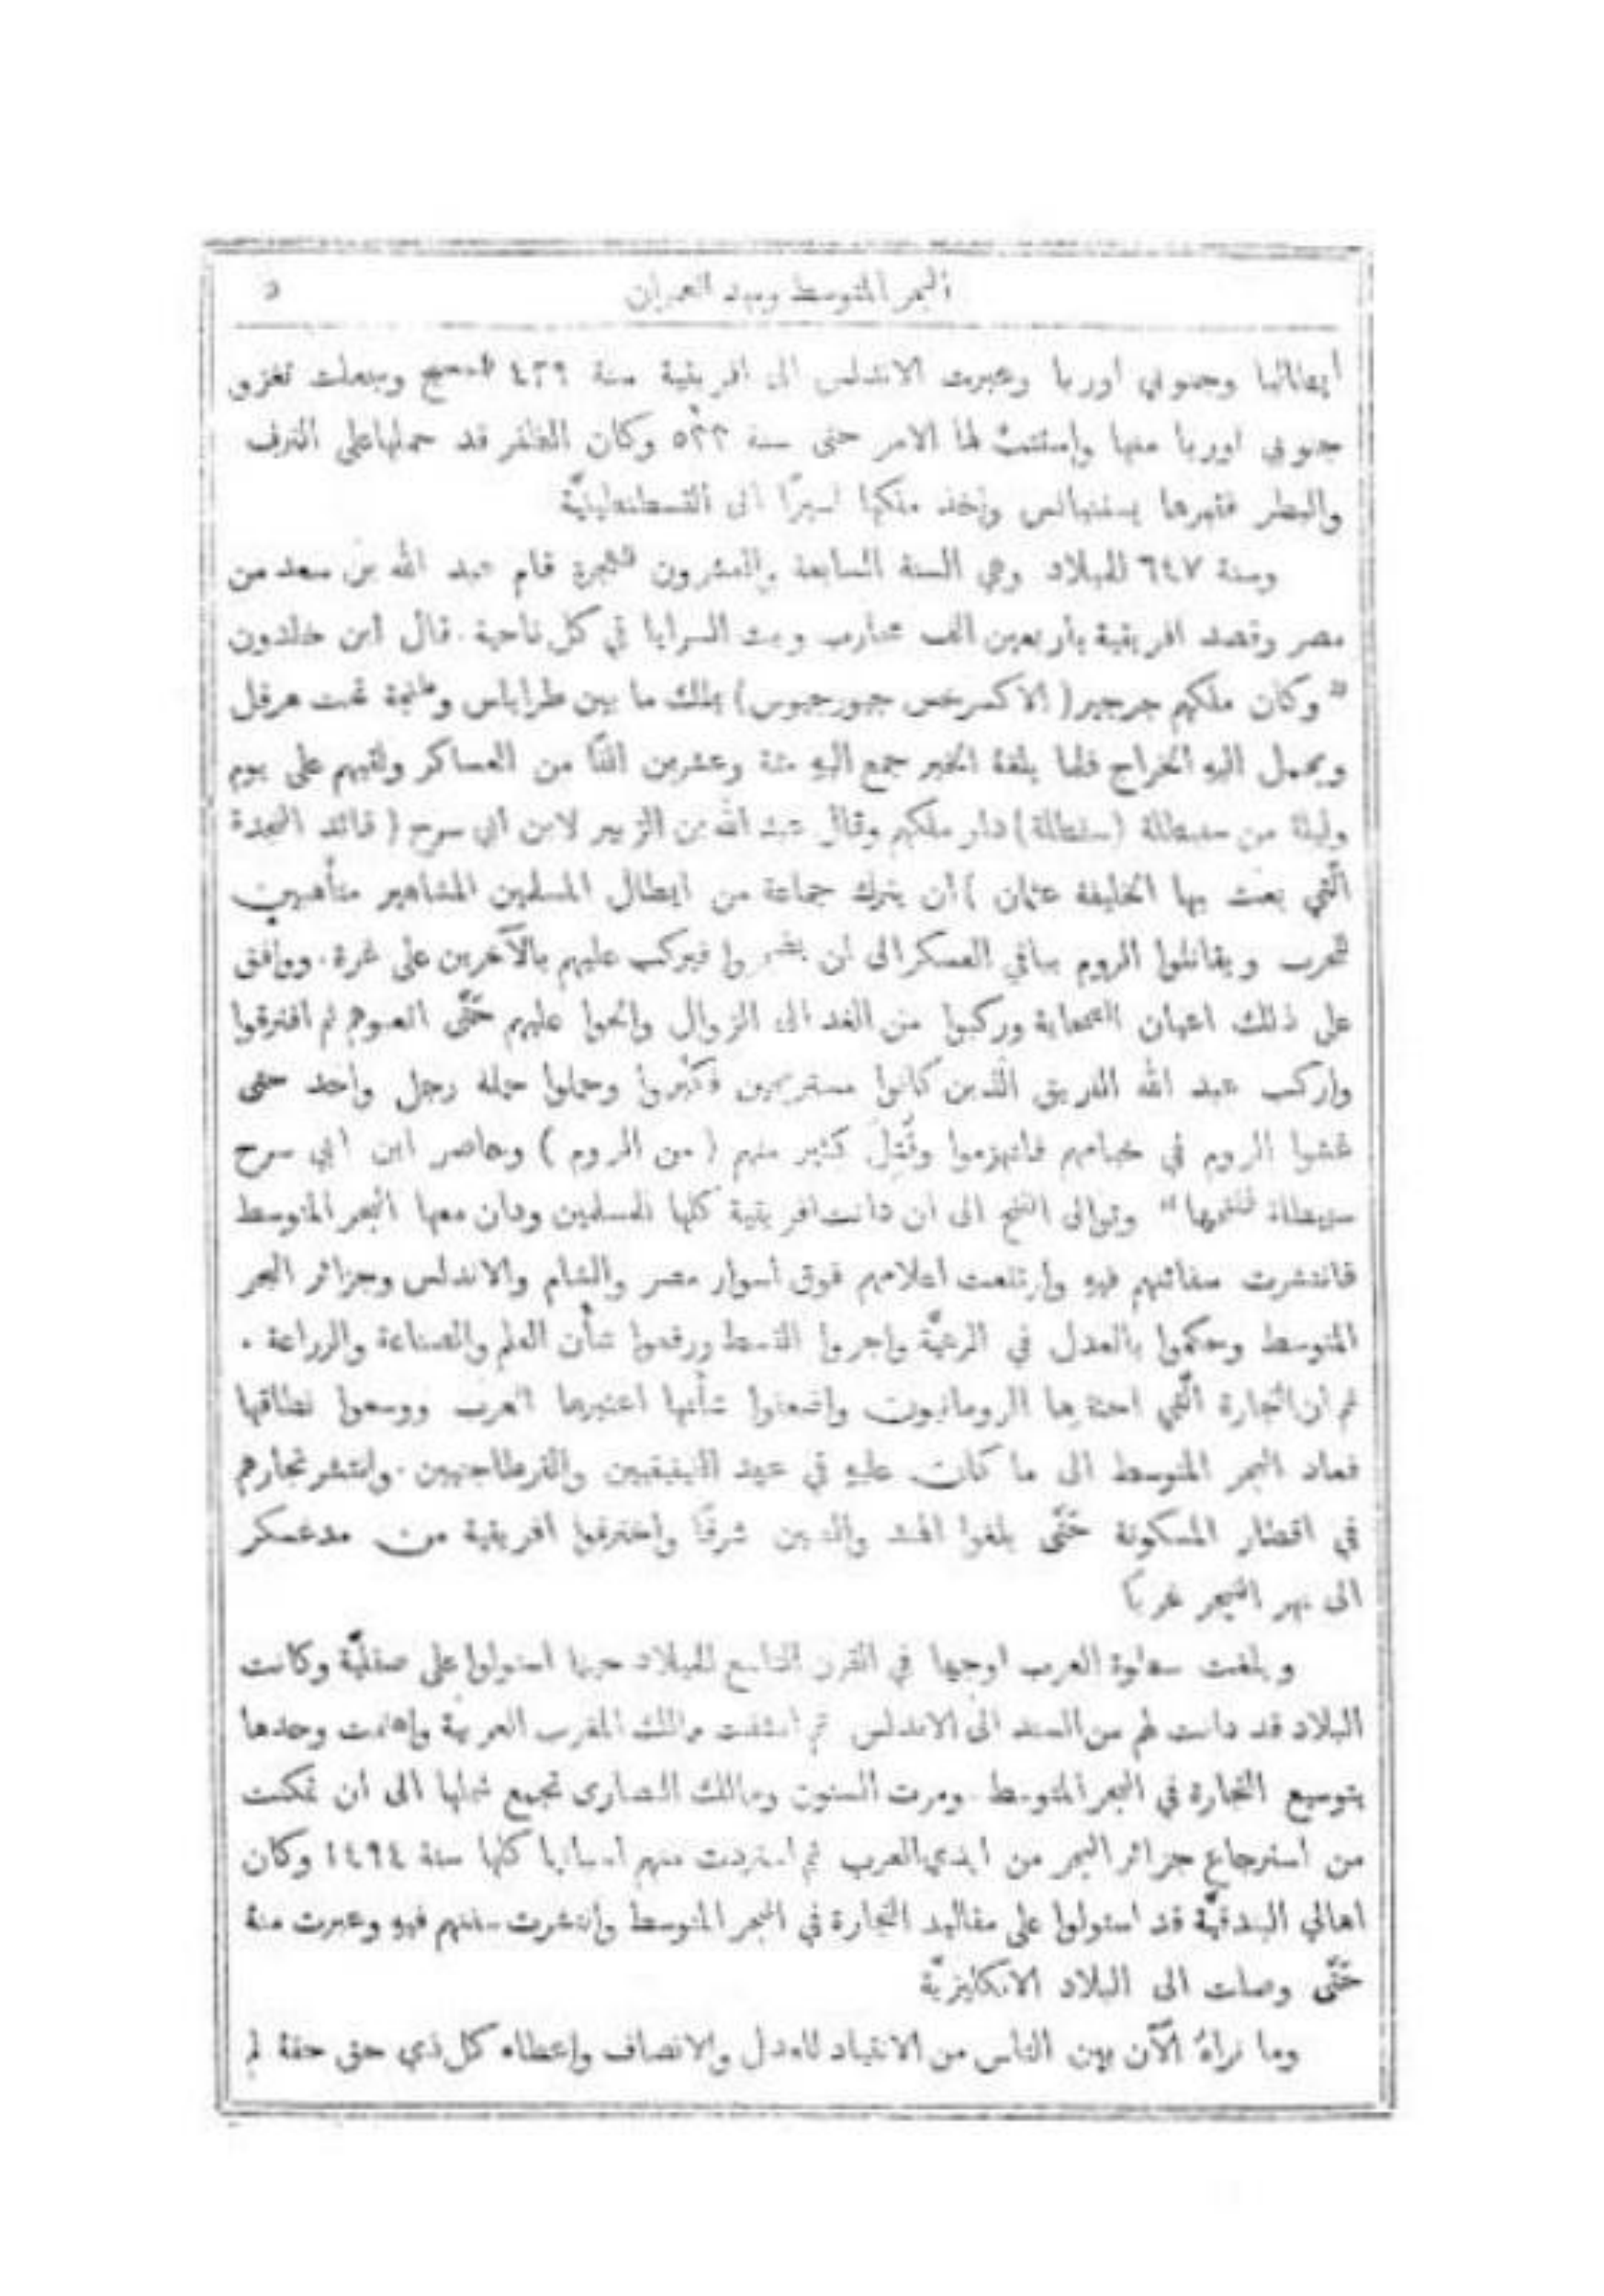 البحر المتوسط ومهد العمران ٥
ايطاليا وجنوبي اوربا وعبرت الاندلس الى افريقية سنة ٤٢٩ للمسيح وجعلت تغزو
جنوبي اوربا منها واستتبَّ لها الامر حتى سنة ٥٣٣ وكان الظفر قد حملها على الترف
والبطر فقهرها يستنيانس واخذ ملكها اسيرًا الى القسطنطينيَّة
وسنة ٦٤٧ للميلاد وهي السنة السابعة والعشرون للهجرة قام عبد الله بن سعد من
مصر وقصد افريقية باربعين الف محارب وبث السرايا في كل ناحية. قال ابن خلدون
"وكان ملكهم جرجير (الاكسرخس جيورجيوس) يملك ما بين طرابلس وطنجة تحت هرقل
ويحمل اليهِ الخراج فلما بلغهُ الخبر جمع اليهِ مئة وعشرين الفًا من العساكر ولقيهم على يوم
وليلة من سبيطلة (سفطلة) دار ملكهم وقال عبد الله بن الزبير لابن ابي سرح (قائد النجدة
الَّتي بعث بها الخليفة عثمان) ان يترك جماعة من ابطال المسلمين المشاهير متأهبين
للحرب ويقاتلوا الروم بباقي العسكر الى ان يضجروا فيركب عليهم بالآخرين على غرة. ووافق
على ذلك اعيان الصحابة وركبوا من الغد الى الزوال والحوا عليهم حَتَّى اتعبوهم ثم افترقوا
واركب عبد الله الفريق الَّذين كانوا مستريحين فكبَّروا وحملوا حملة رجل واحد حتى
غشوا الروم في خيامهم فانهزموا وقُتِلَ كثير منهم (من الروم) وحاصر ابن ابي سرح
سبيطلة ففتحها" وتوالى الفتح الى ان دانت افريقية كلها للمسلمين ودان معها البحر المتوسط
فانتشرت سفائنهم فيهِ وارتفعت اعلامهم فوق اسوار مصر والشام والاندلس وجزائر البحر
المتوسط وحكموا بالعدل في الرعيَّة واجروا القسط ورفعوا شأن العلم والصناعة والزراعة.
ثم ان التجارة الَّتي احتقرها الرومانيون واضعفوا شأنها اعتبرها العرب ووسعوا نطاقها
فعاد البحر المتوسط الى ما كان عليهِ في عهد الفينيقيين والقرطاجنيين. وانتشر تجارهم
في اقطار المسكونة حَتَّى بلغوا الهند والصين شرقًا واخترقوا افريقية من مدغسكر
الى نهر النيجر غربًا
وبلغت سطوة العرب اوجها في القرن التاسع للميلاد حينما استولوا على صقليَّة وكانت
البلاد قد دانت لهم من السند الى الاندلس ثم انشقت ممالك المغرب العربية واهتمت وحدها
بتوسيع التجارة في البحر المتوسط. ومرت السنون وممالك النصارى تجمع شملها الى ان تمكنت
من استرجاع جزائر البحر من ايدي العرب ثم استردت منهم اسبانيا كلها سنة ١٤٩٤ وكان
اهالي البندقيَّة قد استولوا على مقاليد التجارة في البحر المتوسط وانتشرت سفنهم فيهِ وعبرت منهُ
حَتَّى وصلت الى البلاد الانكليزيَّة
وما نراهُ الآن بين الناس من الانقياد للعدل والانصاف واعطاء كل ذي حق حقهُ لم